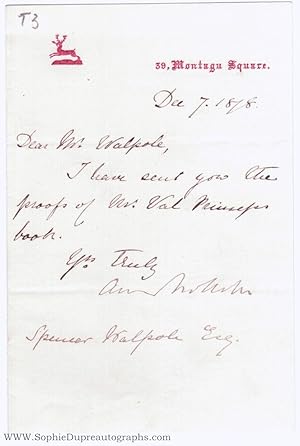 T3
39, Montagu Square.
Dec 7. 1878.
Dear Mr. Walpole,
I have sent you the
proofs of Mr. Val Prinseps
book.
Yrs truly
Spencer Walpole Esq.
www.SophieDupreautographs.com